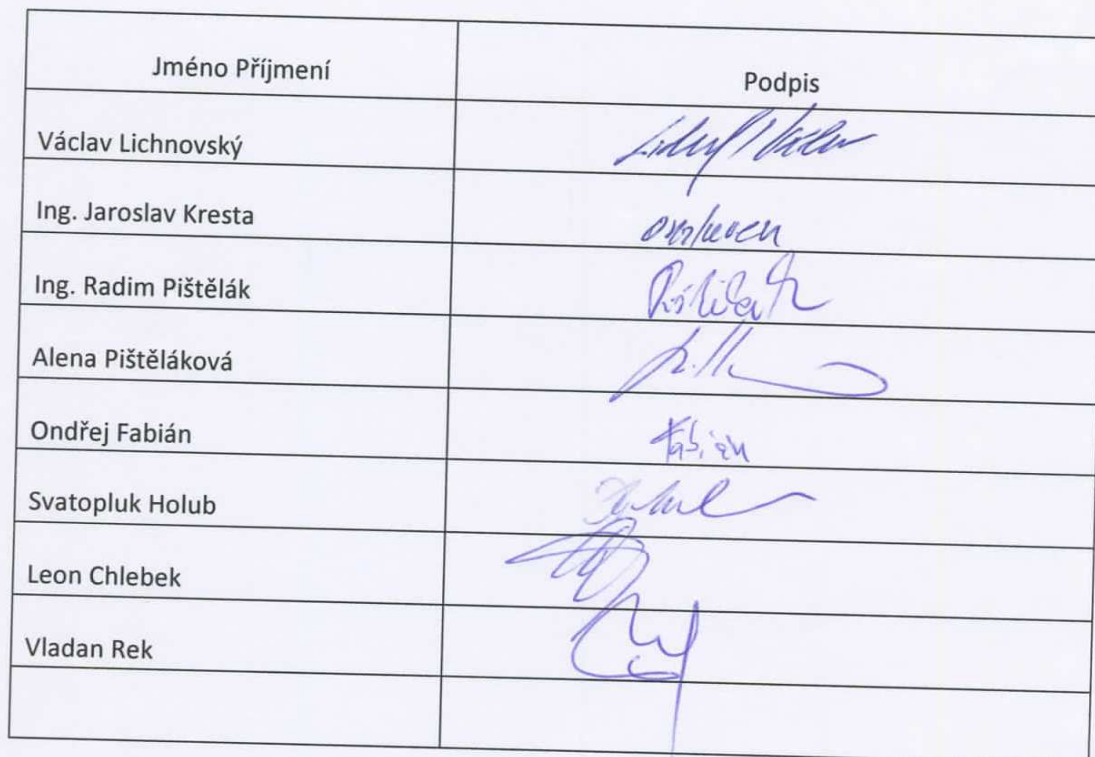 Jméno Příjmení Podpis
Václav Lichnovský
Ing. Jaroslav Kresta omluven
Ing. Radim Pištělák
Alena Pištěláková
Ondřej Fabián Fabián
Svatopluk Holub
Leon Chlebek
Vladan Rek